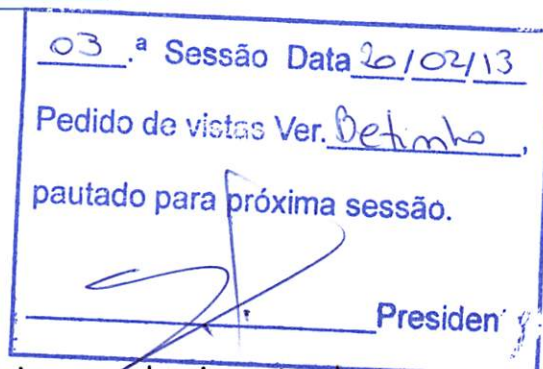 03.ª Sessão Data 20/02/13
Pedido de vistas Ver. Betinho,
pautado para próxima sessão.
Presiden